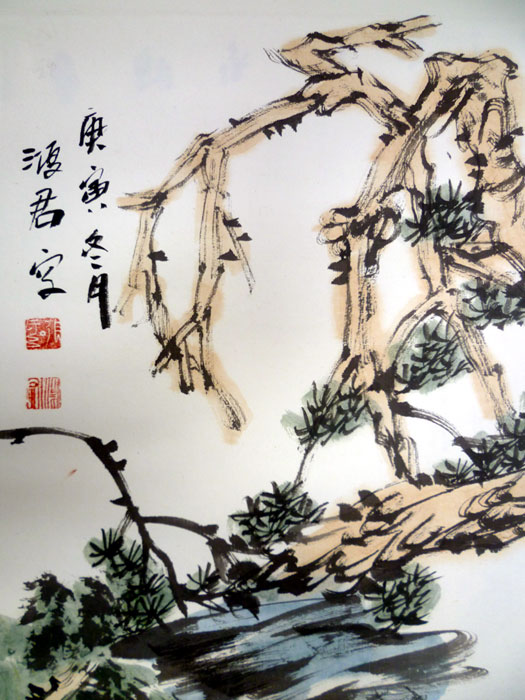 庚寅冬月
鸿君写